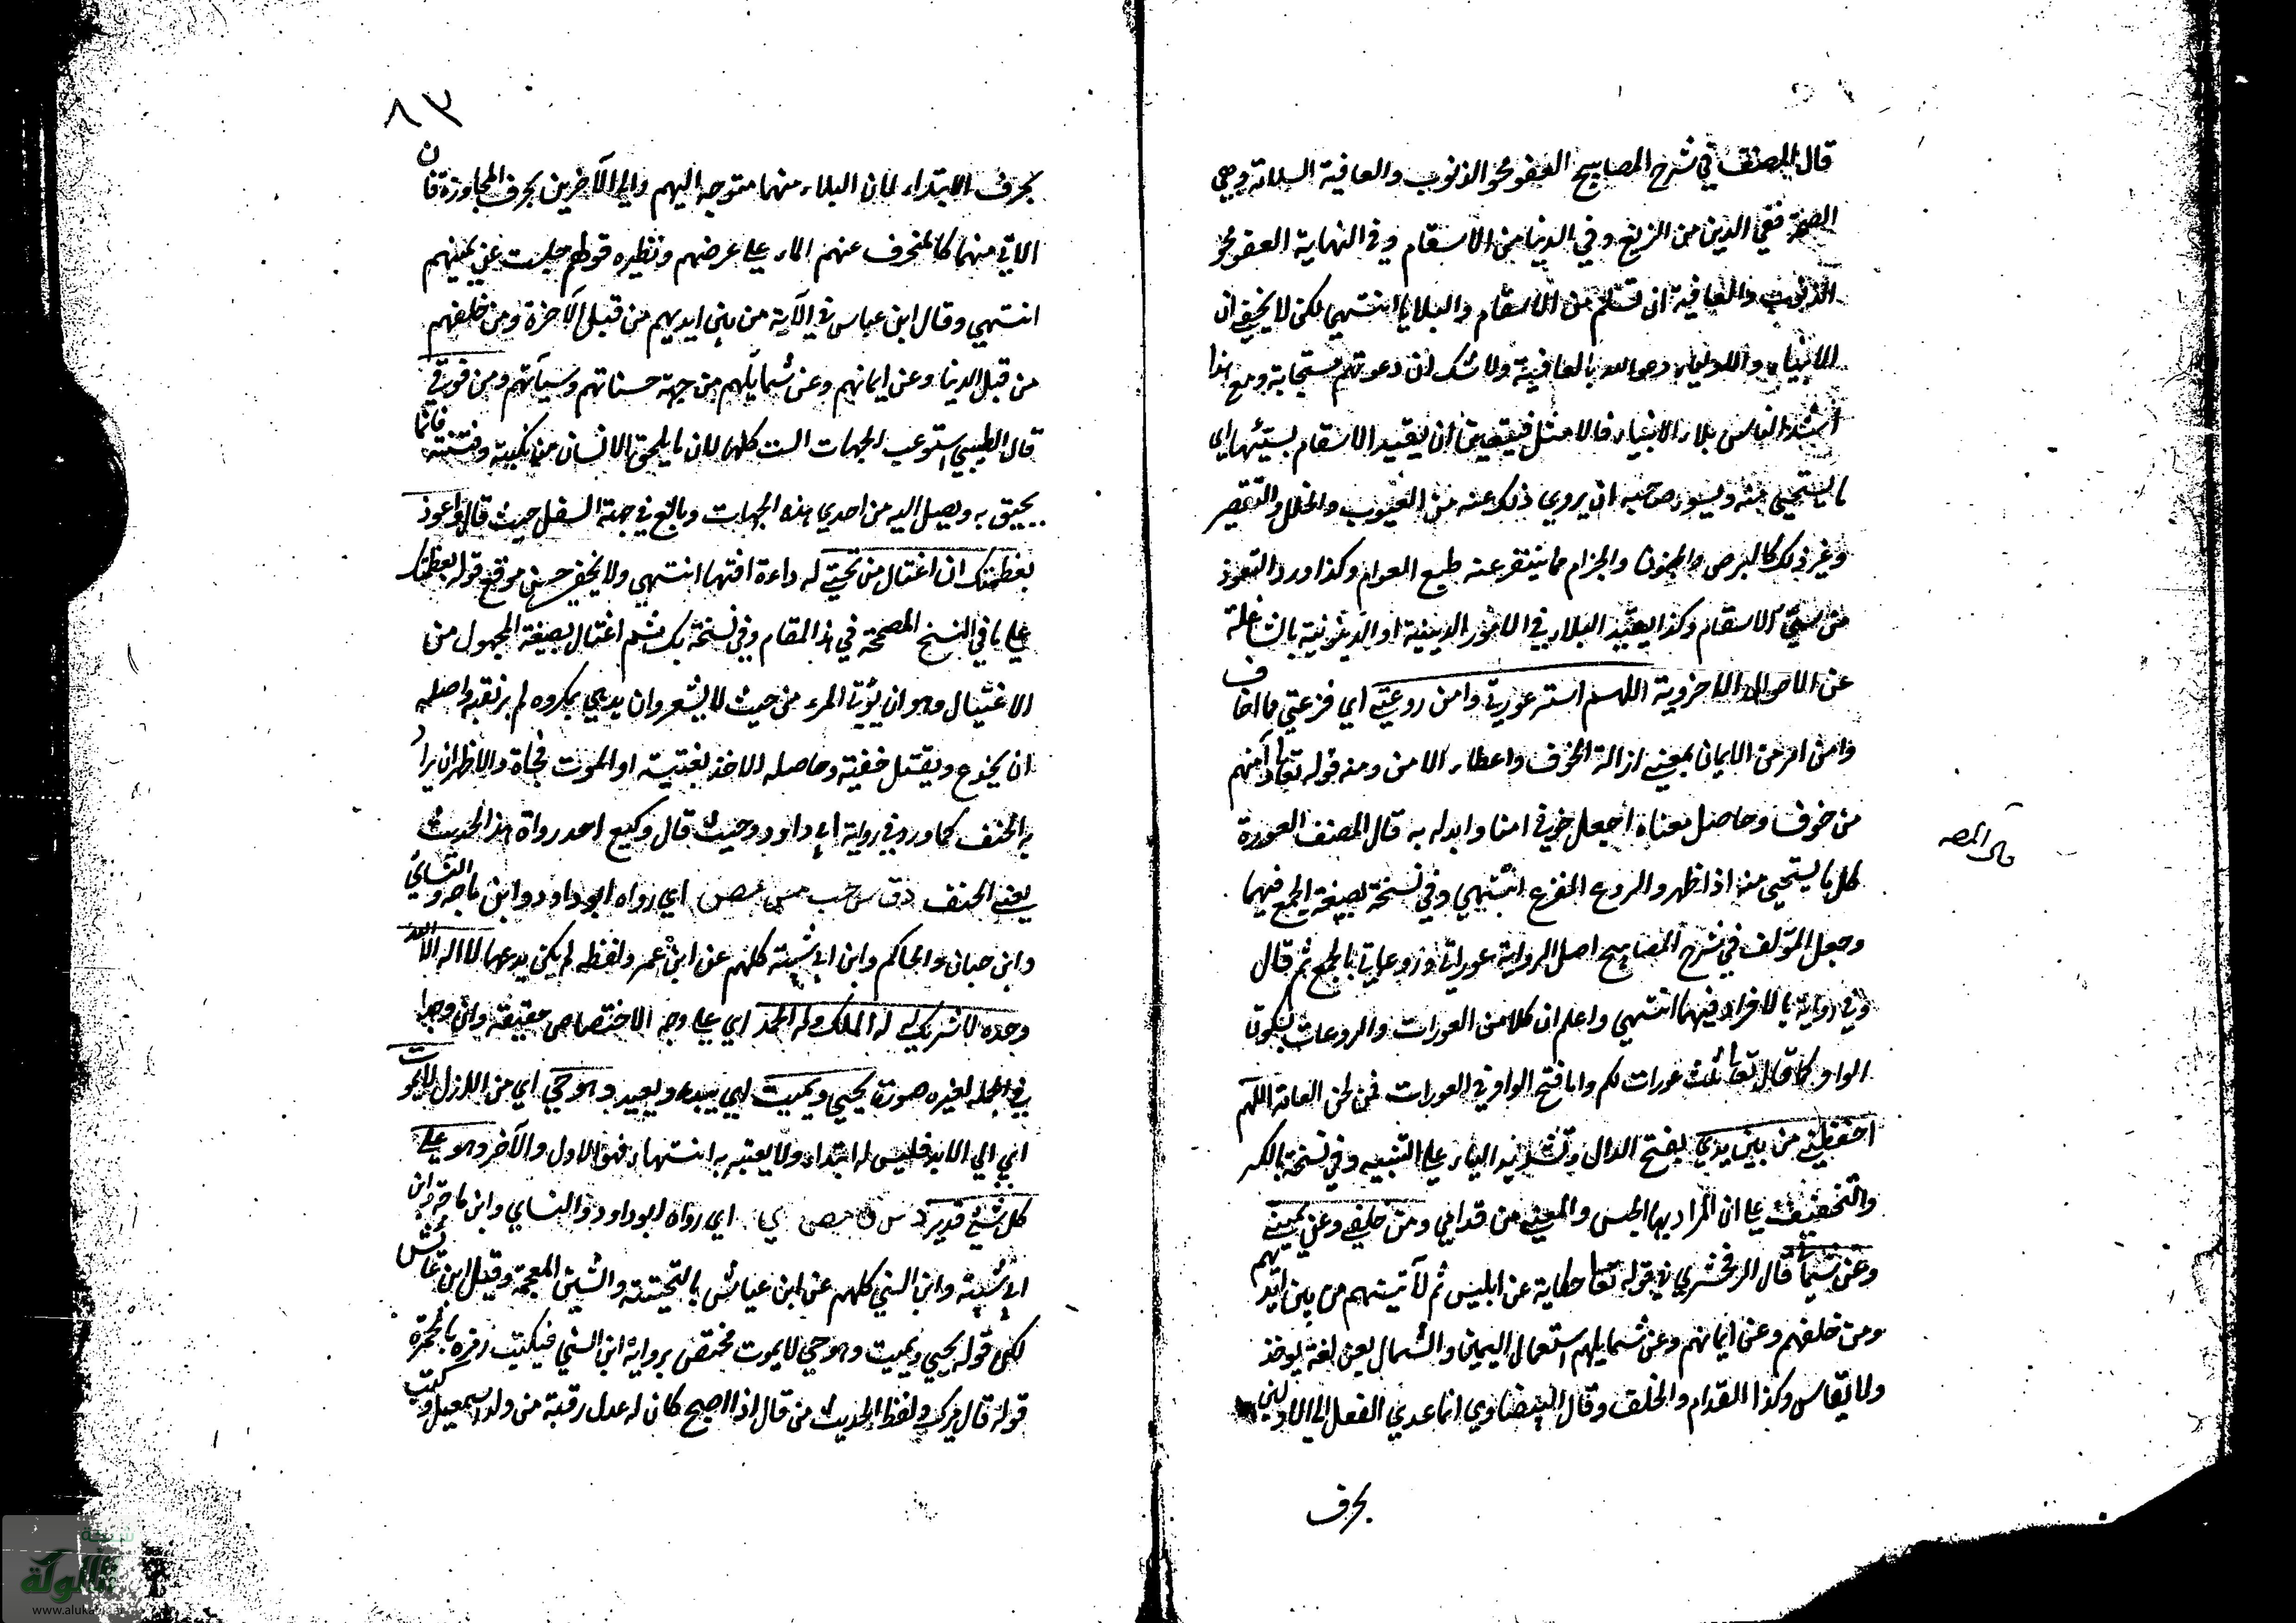 قال المصنف في شرح المصابيح العفو محو الذنوب والعافية السلامة وهي
الصحة ففي الدين من الزيغ وفي الدنيا من الاسقام وفي النهاية العفو محو
الذنوب والعافية ان تسلم من الاسقام والبلايا انتهي لكن لا يخفي ان
الانبياء والاولياء دعوا الله بالعافية ولا شك ان دعوتهم مستجابة ومع هذا
اشد الناس بلاء الانبياء فالامثل فيتعين ان يقيد الاسقام بسيئها اي
ما يستحيي منه ويسوء صاحبه ان يروي ذلك عنه من العيوب والخلل والتقصير
وغير ذلك كالبرص والجنون والجذام مما يتنفر عنه طبع العوام وكذا ورد التعوذ
من سيئ الاسقام وكذا يقيد البلاء في الامور الدينية او الدنيوية بالشاغلة
عن الاحوال الاخروية اللهم استر عورتي وامن روعتي اي فزعتي مما اخاف
وامن امر من الايمان بمعني ازالة الخوف واعطاء الامن ومنه قوله تعا وآمنهم
من خوف وحاصل معناه اجعل خوفي امنا وابدله به قال المصنف العورة
كل ما يستحيي منه اذا ظهر والروع الفزع انتهي وفي نسخة بصيغة الجمع فيهما
وجعل المؤلف في شرح المصابيح اصل الرواية عوراتي وروعاتي بالجمع ثم قال
وفي رواية بالافراد فيهما انتهي واعلم ان كلا من العورات والروعات بسكون
الواو كما قال تعا ثلث عورات لكم واما فتح الواو في العورات فمن لحن العامة اللهم
احفظني من بين يدي بفتح الدال وتشديد الياء علي التثنية وفي نسخة بالكسر
والتخفيف علي ان المراد بها الجنس والمعني من قدامي ومن خلفي وعن يميني
وعن شمالي قال الزمخشري في قوله تعا حكاية عن ابليس ثم لآتينهم من بين ايديهم
ومن خلفهم وعن ايمانهم وعن شمايلهم استعمال اليمين والشمال بعن لغة يوخذ
ولا يقاس وكذا القدام والخلف وقال البيضاوي انما عدي الفعل الي الاولين
بحرف
قال المصـ
٨٣
بحرف الابتداء لان البلاء منهما متوجه اليهم والي الآخرين بحرف المجاوزة فان
الاتي منهما كالمنحرف عنهم المار علي عرضهم ونظيره قولهم جلست عن يمينهم
انتهي وقال ابن عباس في الآية من بين ايديهم من قبل الآخرة ومن خلفهم
من قبل الدنيا وعن ايمانهم وعن شمايلهم من جهة حسناتهم وسيآتهم ومن فوقي
قال الطيبي استوعب الجهات الست كلها لان ما يلحق الانسان من نكبة وفتنة فانما
يحيق به ويصل اليه من احدي هذه الجهات وبالغ في جهة السفل حيث قال واعوذ
بعظمتك ان اغتال من تحتي له داءة افتها انتهي ولا يخفي حسن موقع قوله بعظمتك
علي ما في النسخ المصححة في هذا المقام وفي نسخة بك ثم اغتال بصيغة المجهول من
الاغتيال وهو ان يؤتي المرء من حيث لا يشعر وان يدهي بمكروه لم يرتقبه واصله
ان يخدع ويقتل خفية وحاصله الاخذ بغتة او الموت فجاة والاظهر ان يراد
به الخسف كما ورد في رواية ابي داود وحيث قال وكيع احد رواة هذا الحديث
يعني الخسف د ق س حب مس مص اي رواه ابو داود وابن ماجه والنسائي
وابن حبان والحاكم وابن ابي شيبة كلهم عن ابن عمر ولفظه لم يكن يدعها لا اله الا الله
وحده لا شريك له له الملك وله الحمد اي علي وجه الاختصاص حقيقة وان وجدا
في الجملة لغيره صورة يحيي ويميت اي يبدء ويعيد وهو حي اي من الازل لا يموت
اي الي الابد فليس له ابتداء ولا يعتبر به انتهاء فهو الاول والآخر وهو علي
كل شيئ قدير د س ق مص ي اي رواه ابو داود والنسايي وابن ماجة وابن
ابي شيبة وابن السني كلهم عن ابن عياش بالتحتية والشين المعجمة وقيل ابن عائش
لكن قوله يحيي ويميت وهو حي لا يموت مختص برواية ابن السني فيكتب رمزه بالحمرة
قوله قال ميرك ولفظ الحديث من قال اذا اصبح كان له عدل رقبة من ولد اسمعيل وكتب
شبكة
الألوكة